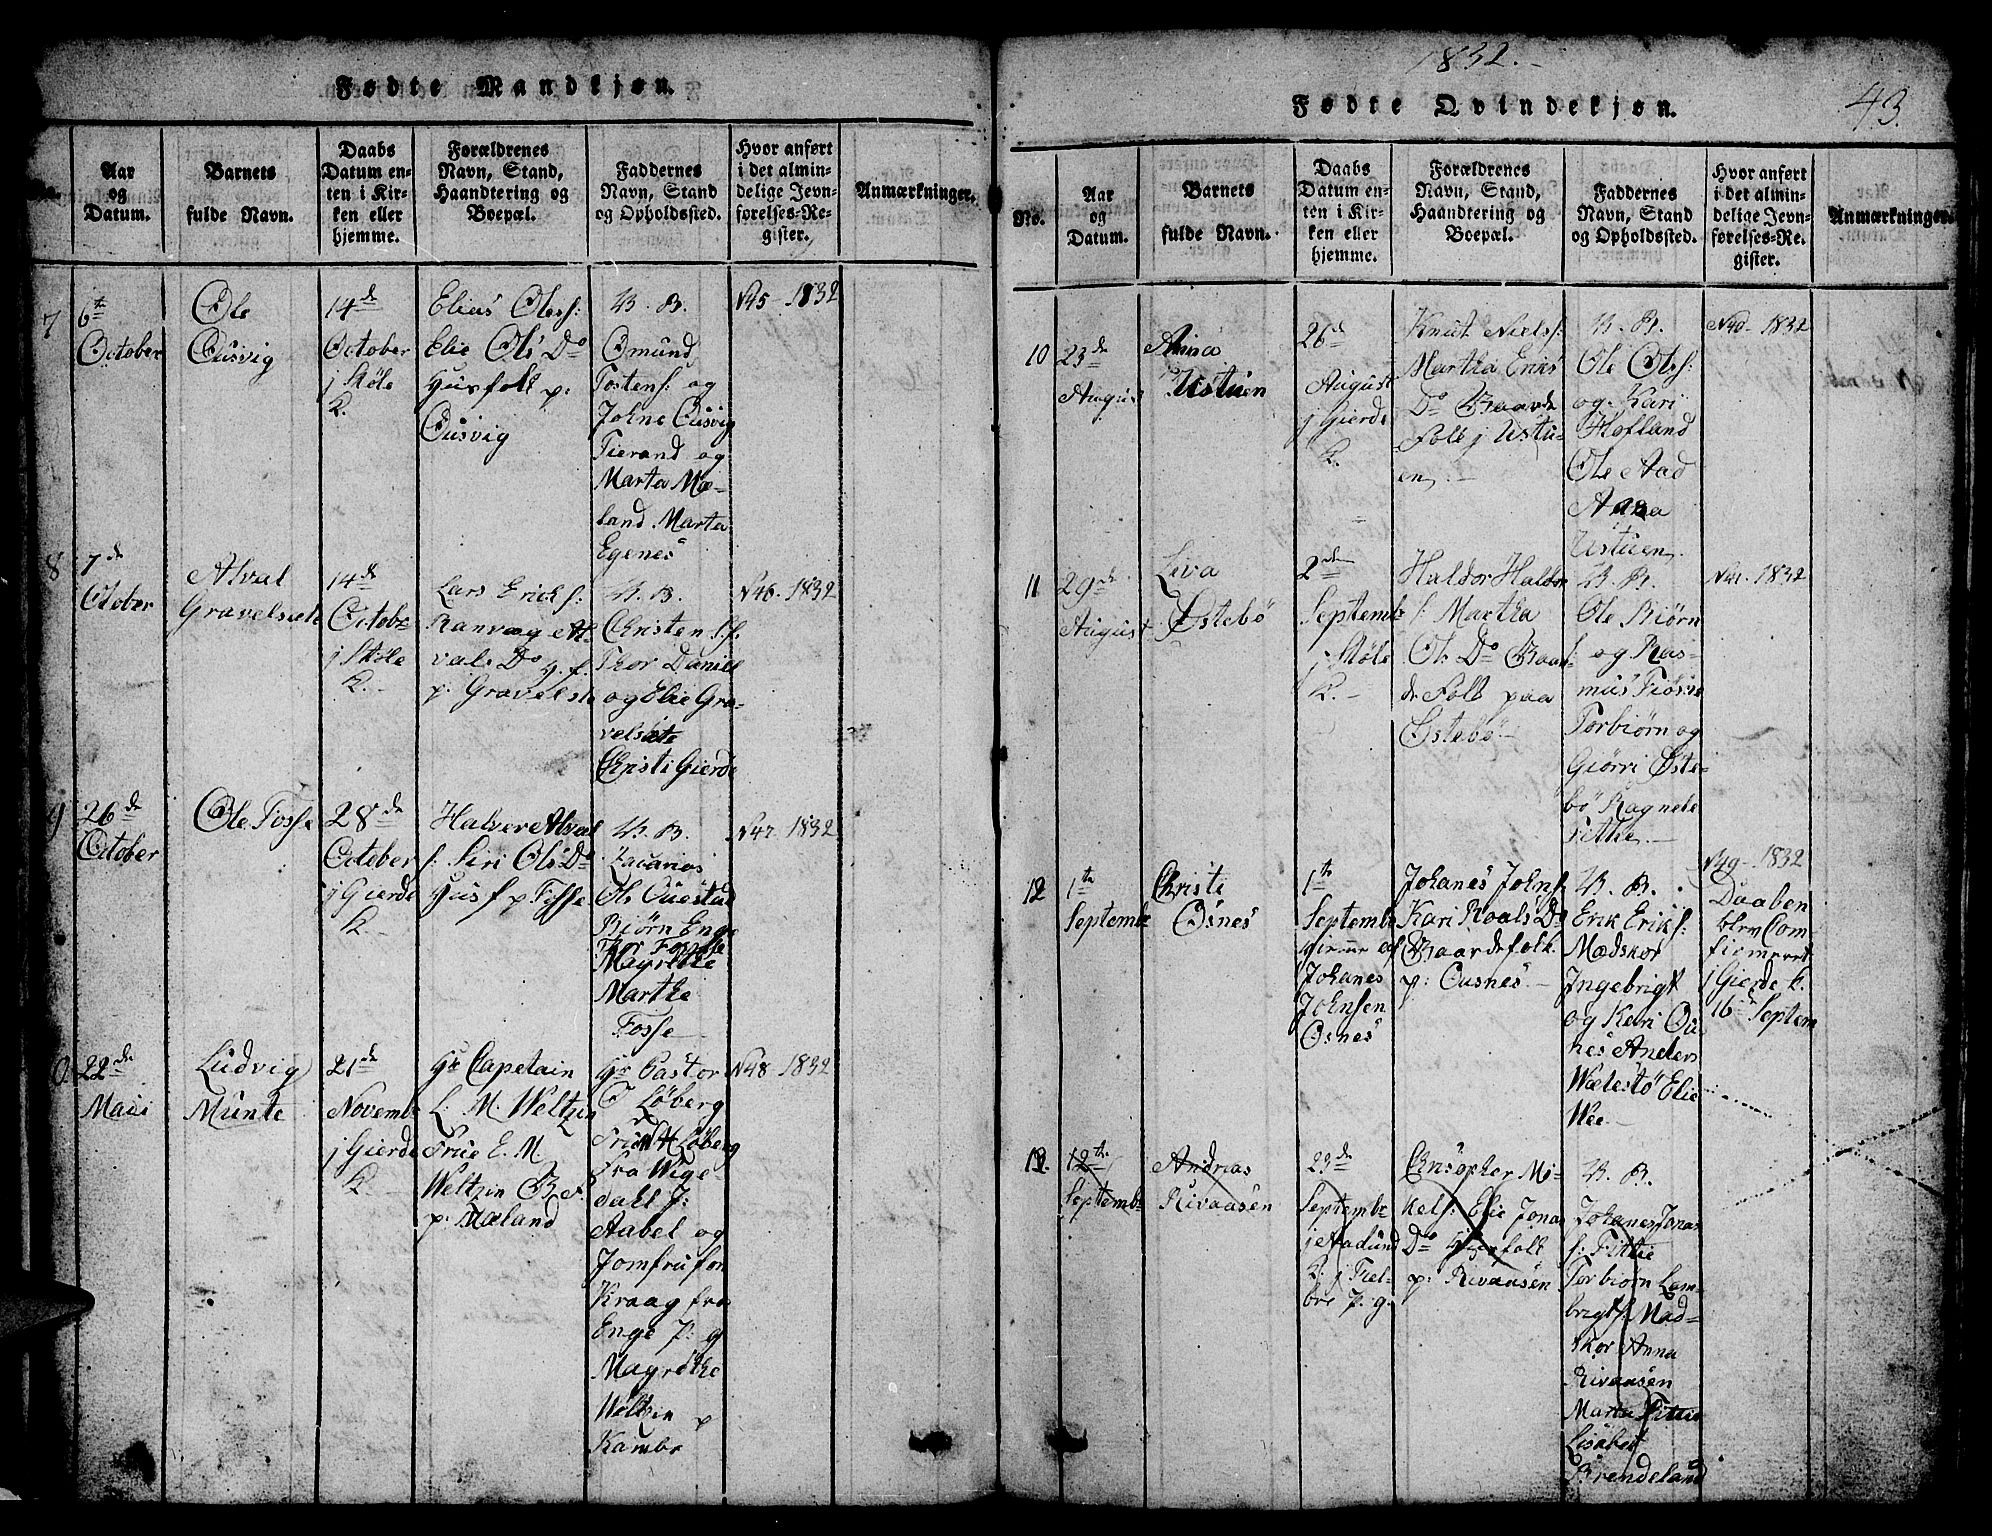 1832.
43.
Fødte Mandkjøn.
Aar og Datum.
Barnets fulde Navn.
Daabs Datum enten i Kirken eller hjemme.
Forældrenes Navn, Stand, Haandtering og Boepæl.
Faddernes Navn, Stand og Opholdssted.
Hvor anført i det almindelige Jevnførelses-Register.
Anmærkninger.
7
6te
October
Ole
Ousvig
14de
October
j Støle
K.
Elias Olss:
Elie Ols Do
Husfolk p:
Ousvig
V. B.
Omund
Tostens: og
Johne Ousvig
Tierand og
Marta Mæ-
land. Marta
Egenes
N45- 1832
8
7de
October
Alval
Gravelsæte
14de
Octobr
j Støle
K.
Lars Ericks:
Ranvæg Al-
vals Do H. f.
p: Gravelste
V. B.
Christen
Thor Daniel
og Elie Gra-
velsæte
Christi Gierde
N46. 1832
9
26de
October
Ole Fosse
28de
October
j Gierde
K.
Halver Alval
s: Siri Ols Do
Husf p Fosse
V. B.
Zacarias
Ole Ouestad
Biørn Enge
Thor Fosse
Magrethe
Marthe
Fosse
N47. 1832
0.
22de
Maii
Ludvig
Munte
21de
Novembr
j Gierde
K.
Hr Capetain
L. M. Weltzin
Frue E. M.
Weltzin B. f.
p: Mæland
Hr Pastor
Løberg
Frue H Løberg
fra Wige-
dahl P:
Aabel og
Jomfru fon
Kraag fra
Enge P: g
Magrethe
Weltzin p
Kambe
N48- 1832
Fødte Qvindekjøn.
No.
Aar og Datum.
Barnets fulde Navn.
Daabs Datum enten i Kirken eller hjemme.
Forældrenes Navn, Stand, Haandtering og Boepæl.
Faddernes Navn, Stand og Opholdssted.
Hvor anført i det almindelige Jevnførelses-Register.
Anmærkninger.
10
23de
August
Anna
Ustuen
26de
August
j Gierde
K.
Knut Niels s:
Martha Eriks
Do Baarde
Folk j Ustu-
en.
V. B.
Ole Olss:
og Kari
Hofland
Ole Aad
Anna
Ustuen.
N40- 1832
11
29de
August
Liva
Østebö
2den
Septembr
j Støle
K.
Haldor Haldor
s: Martha
Ols Do Baar-
de Folk paa
Østebö
V. B.
Ole Biørn
s: og Ras-
mus Tiösvo
Torbiørn og
Giørri Øste-
bö Ragnele
Vithe.
N41. 1832
12
1te
Septembr
Christi
Osnes
1te
Septembr
hiemme af
Johanes
Johnsen
Osnes
Johanes Johns.
Kari Roals Do
Baardefolk.
p: Ousnes.
V. B.
Erik Eriks:
Mædskor
Ingebrigt
og Kari Ou
nes Anders
Wælestö Elie
Wee
N49- 1832
Daaben
blev Com
fiemeret
j Gierde k.
16de Septem
13.
12te
Septembr
Andrias
Rivaasen
23de
Septembr
j Aadland
K. j Fiel-
bre P. g.
Chrisopher Mi-
kels: Elie Jonas
Do Husfolk
p: Rivaasen
V. B.
Johanes Jonas
s: Fittie
Torbiorn Lam-
brigts: Mad-
skor Anna
Rivaasen
Marta Fittie
Lisabet
Brendeland